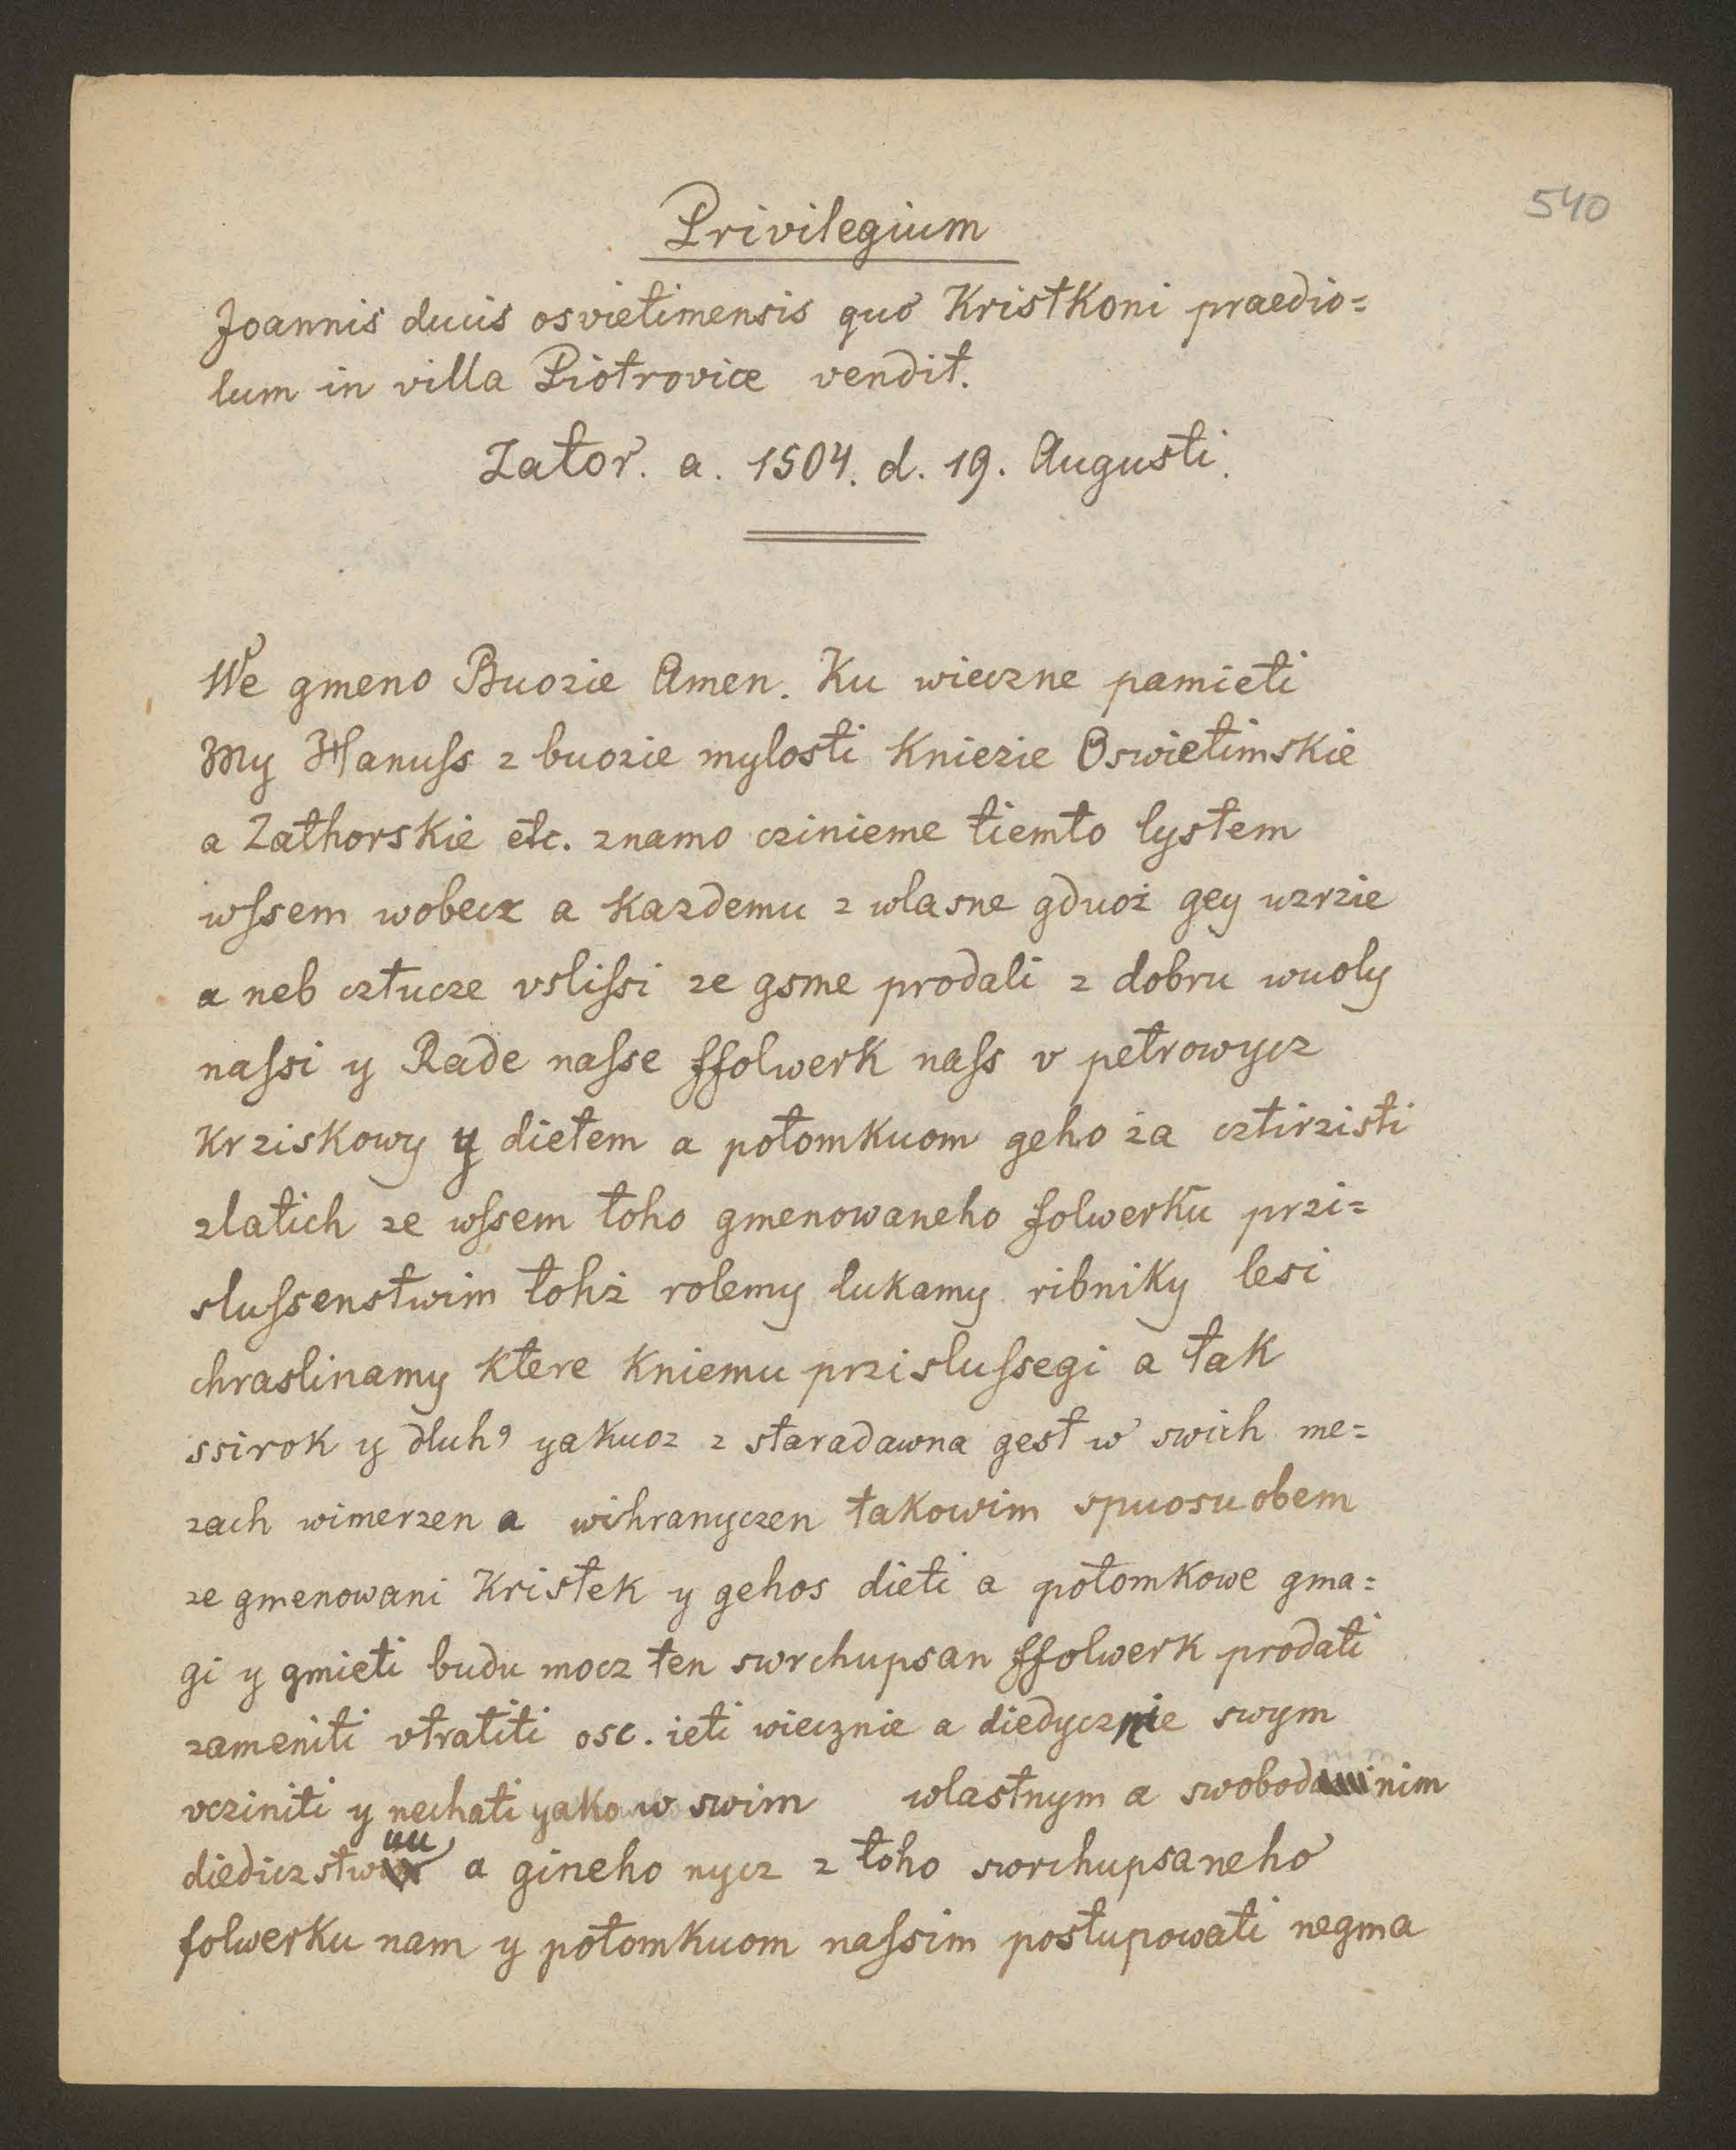 540
Privilegium
Joannis ducis osvietimensis quo Kristkoni praedio=
lum in villa Piotrovice vendit.
Zator. a. 1504. d. 19. Augusti.
We gmeno Buozie Amen. Ku wieczne pamieti
My Hanuſs z buozie mylosti Kniezie Oswietimskie
a Zathorskie etc. znamo czinieme tiemto lystem
wſsem wobecz a Kazdemu z wlasne gduoż gey uzrzie
a neb cztucze vsliſsi ze gsme prodali z dobru wuoly
naſsi y Rade naſse ffolwerk naſs v petrowycz
Krziskowy y dietem a potomkuom geho za cztirzisti
zlatich ze wſsem toho gmenowaneho folwerku przi=
sluſsenstwim tohż rolemy lukamy ribniky lesi
chraslinamy Ktere Kniemu przisluſsegi a tak
ssirok y dluh9 yakuoz z staradawna gest w swich me=
zach wimerzen a wihranyczen takowim spuosuobem
ze gmenowani Kristek y gehos dieti a potomkowe gma=
gi y gmieti budu mocz ten swrchupsan ffolwerk prodati
zameniti vtratiti osc. ieti wiecznie a diedycznie swym
vcziniti y nechati yako w swim wlastnym a swobodnim
diediczstwuu a gineho nycz z toho swrchupsaneho
folwerku nam y potomkuom naſsim postupowati negma